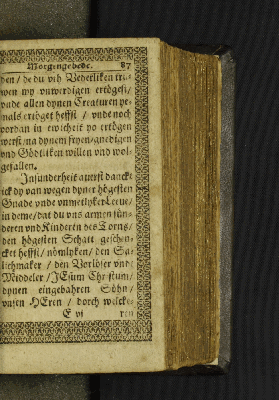 Morgengebede. 87
den / de du vth Vederliken tru-
wen my vnwerdigen ertöget /
vnde allen dynen Creaturen ye-
mals ertöget hefft / vnde noch
vordan in ewicheit yo ertögen
werst / na dynem fryen / gnedigen
vnd Gödtliken willen vnd wol-
gefallen.
Insunderheit auerst dancke
ick dy van wegen dyner högesten
Gnade vnde vnmetlyker Leue /
in deme / dat du vns armen sün-
deren vnd Kinderen des Torns /
den högesten Schatt geschen-
cket hefft / nömlyken / den Sa-
lichmaker / den Vorlöser vnde
Middeler / JEsum Christum /
dynen eingebahren Sühn /
vnsen HEren / dorch welcke-
E vj ren